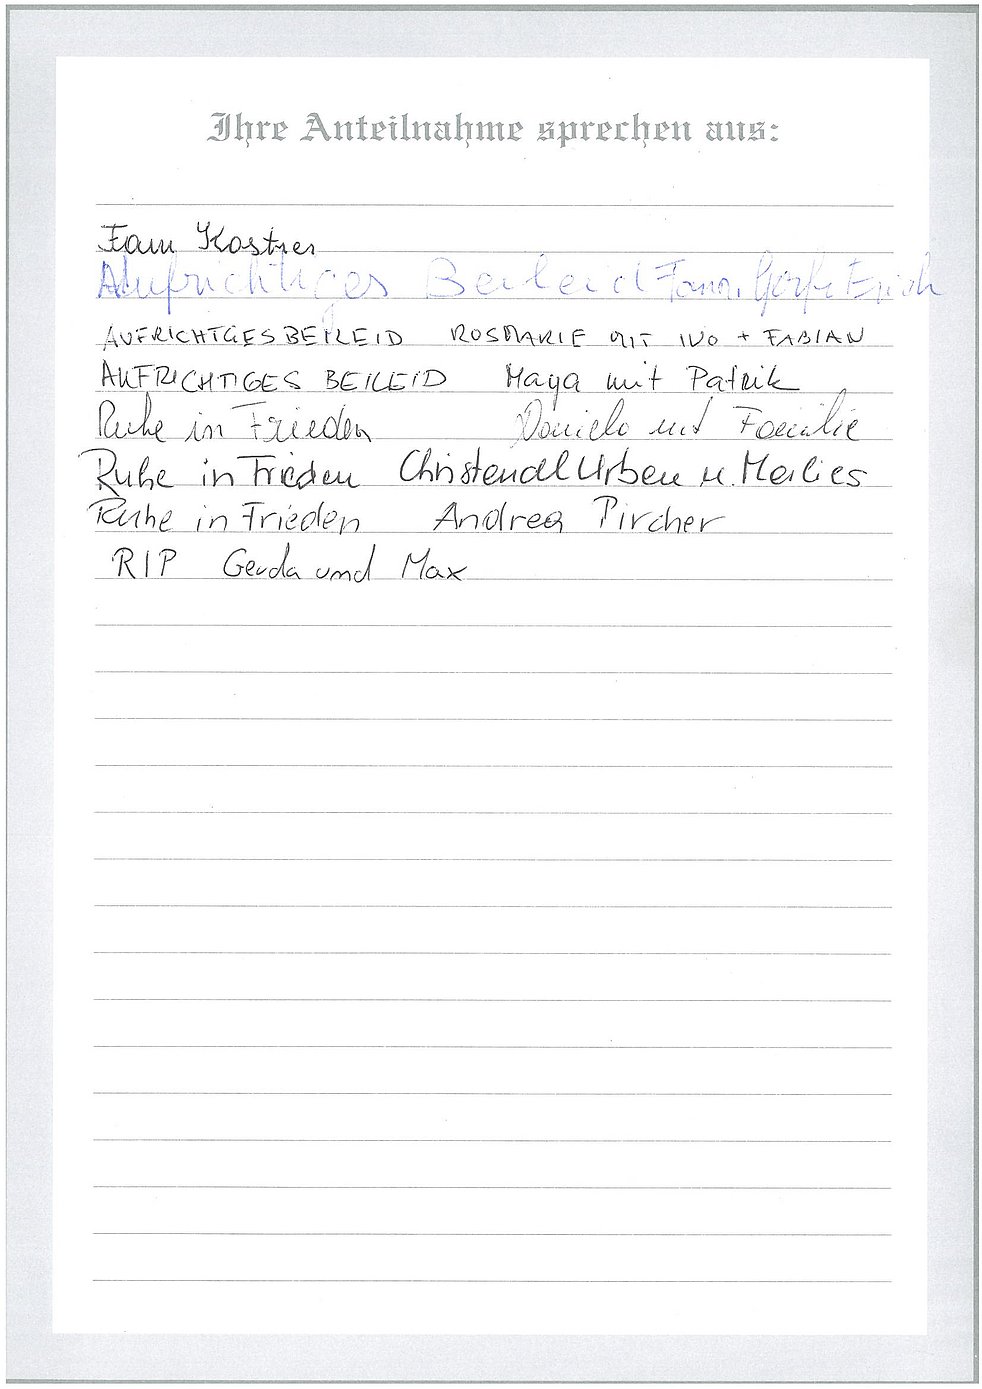 Ihre Anteilnahme sprechen aus:
Fam Kostner
Aufrichtiges Beileid Fam. Erich
AUFRICHTGES BEILEID ROSMARIE MIT IVO + FABIAN
AUFRICHTIGES BEILEID Maya mit Patrik
Ruhe in Frieden Daniela und Familie
Ruhe in Frieden Christandl Urban u. Marlies
Ruhe in Frieden Andrea Pircher
RIP Gerda und Max